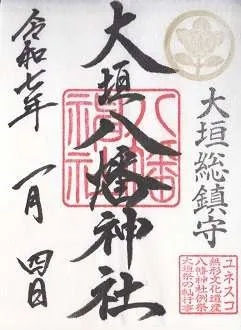 大垣総鎮守
ユネスコ
無形文化遺産
八幡神社例祭
大垣祭の軕行事
大垣八幡神社
八幡神社
令和七年
一月
四日